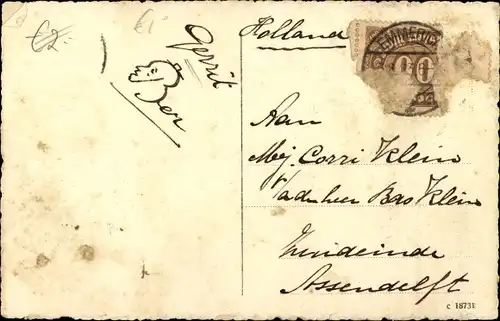 €2-
€1-
Gerrit
Ber
Holland
EMMERICH
Aan
Mej. Corri Klein
p/a den heer Bas Klein
Zuideinde
Assendelft
c 18731